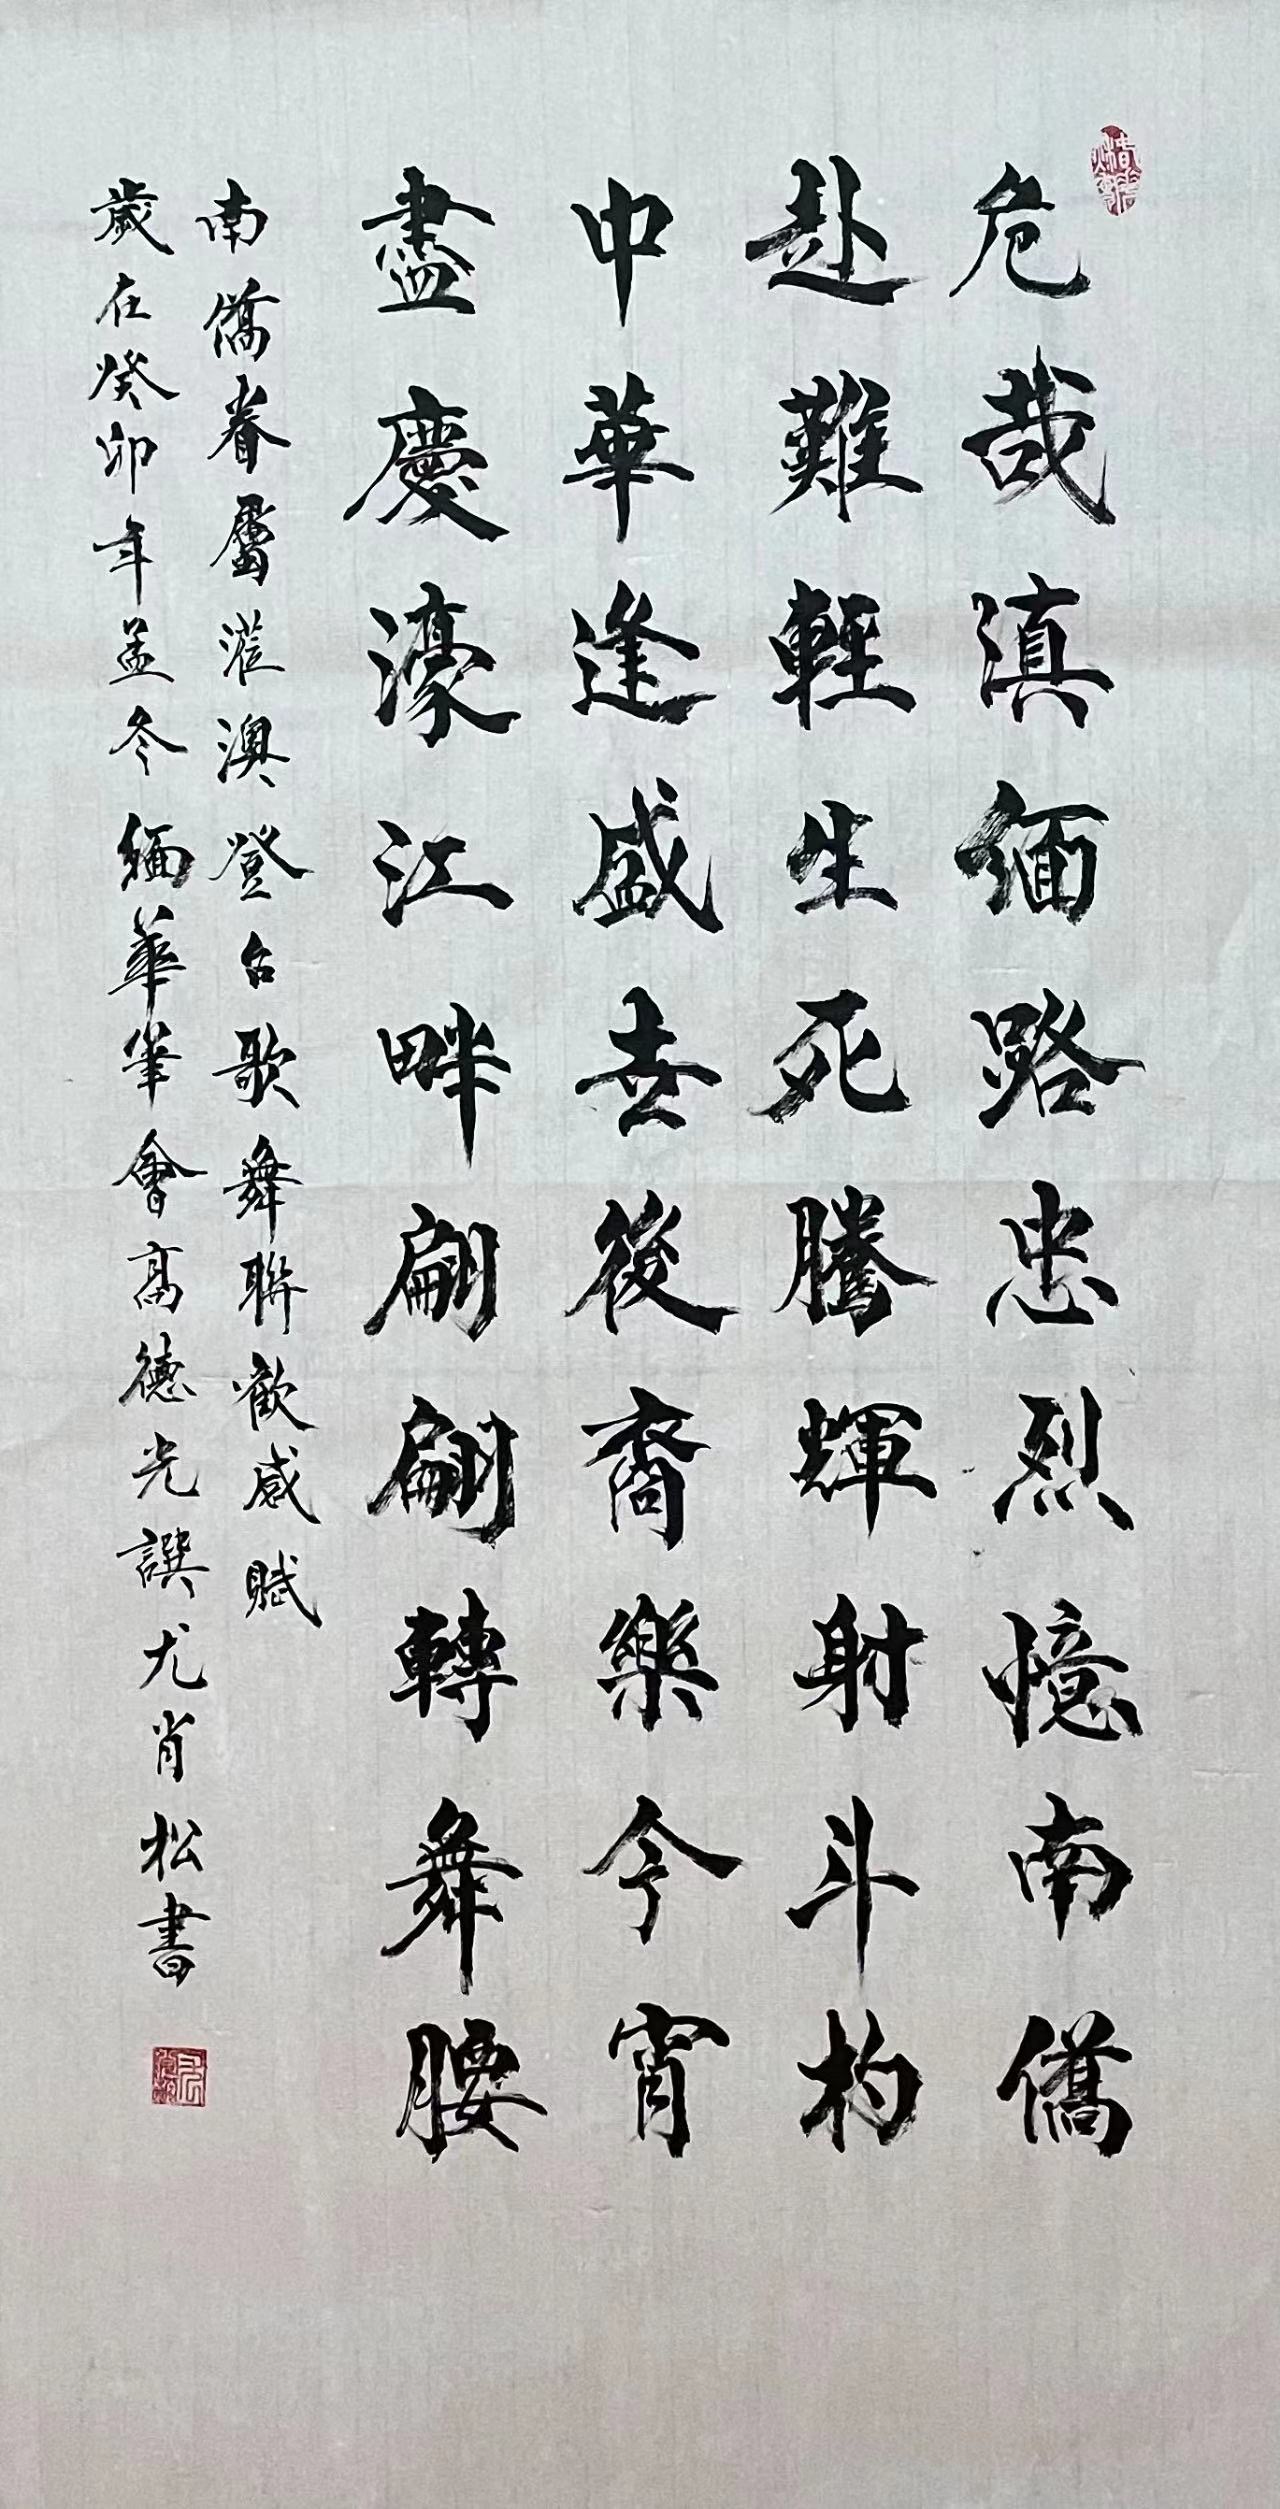 危哉滇緬路忠烈憶南僑
赴難輕生死騰輝射斗杓
中華逢盛世後裔樂今宵
盡慶濠江畔翩翩轉舞腰
南僑眷屬蒞澳登台歌舞聯歡感賦
歲在癸卯年孟冬緬華筆會高德光譔尤肖松書